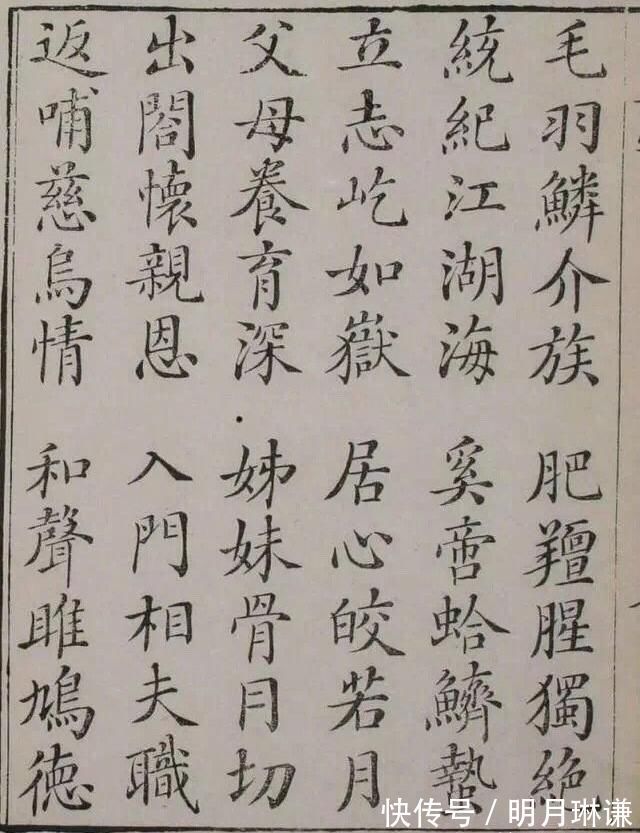 毛羽鱗介族 肥羶腥獨絶
統紀江湖海 奚啻蛤鱭蟄
立志屹如嶽 居心皎若月
父母養育深 姊妹骨月切
出閤懷親恩 入門相夫職
返哺慈烏情 和聲雎鳩徳
快传号/明月琳谦